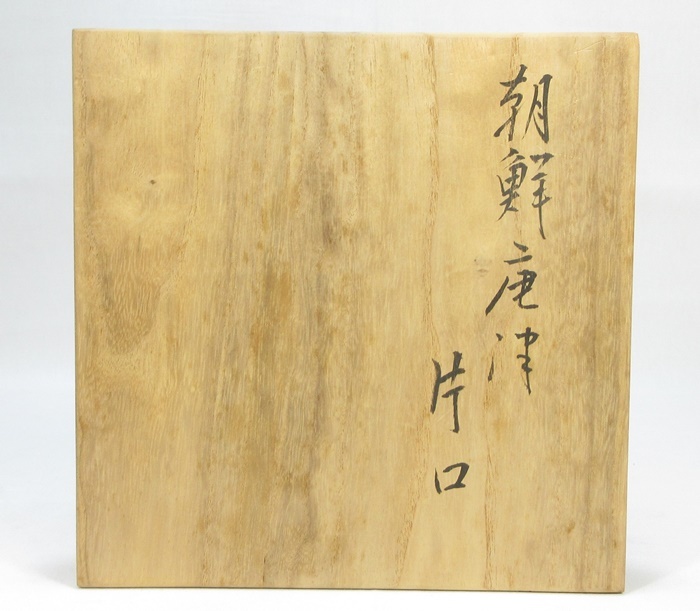 朝鮮唐津
片口